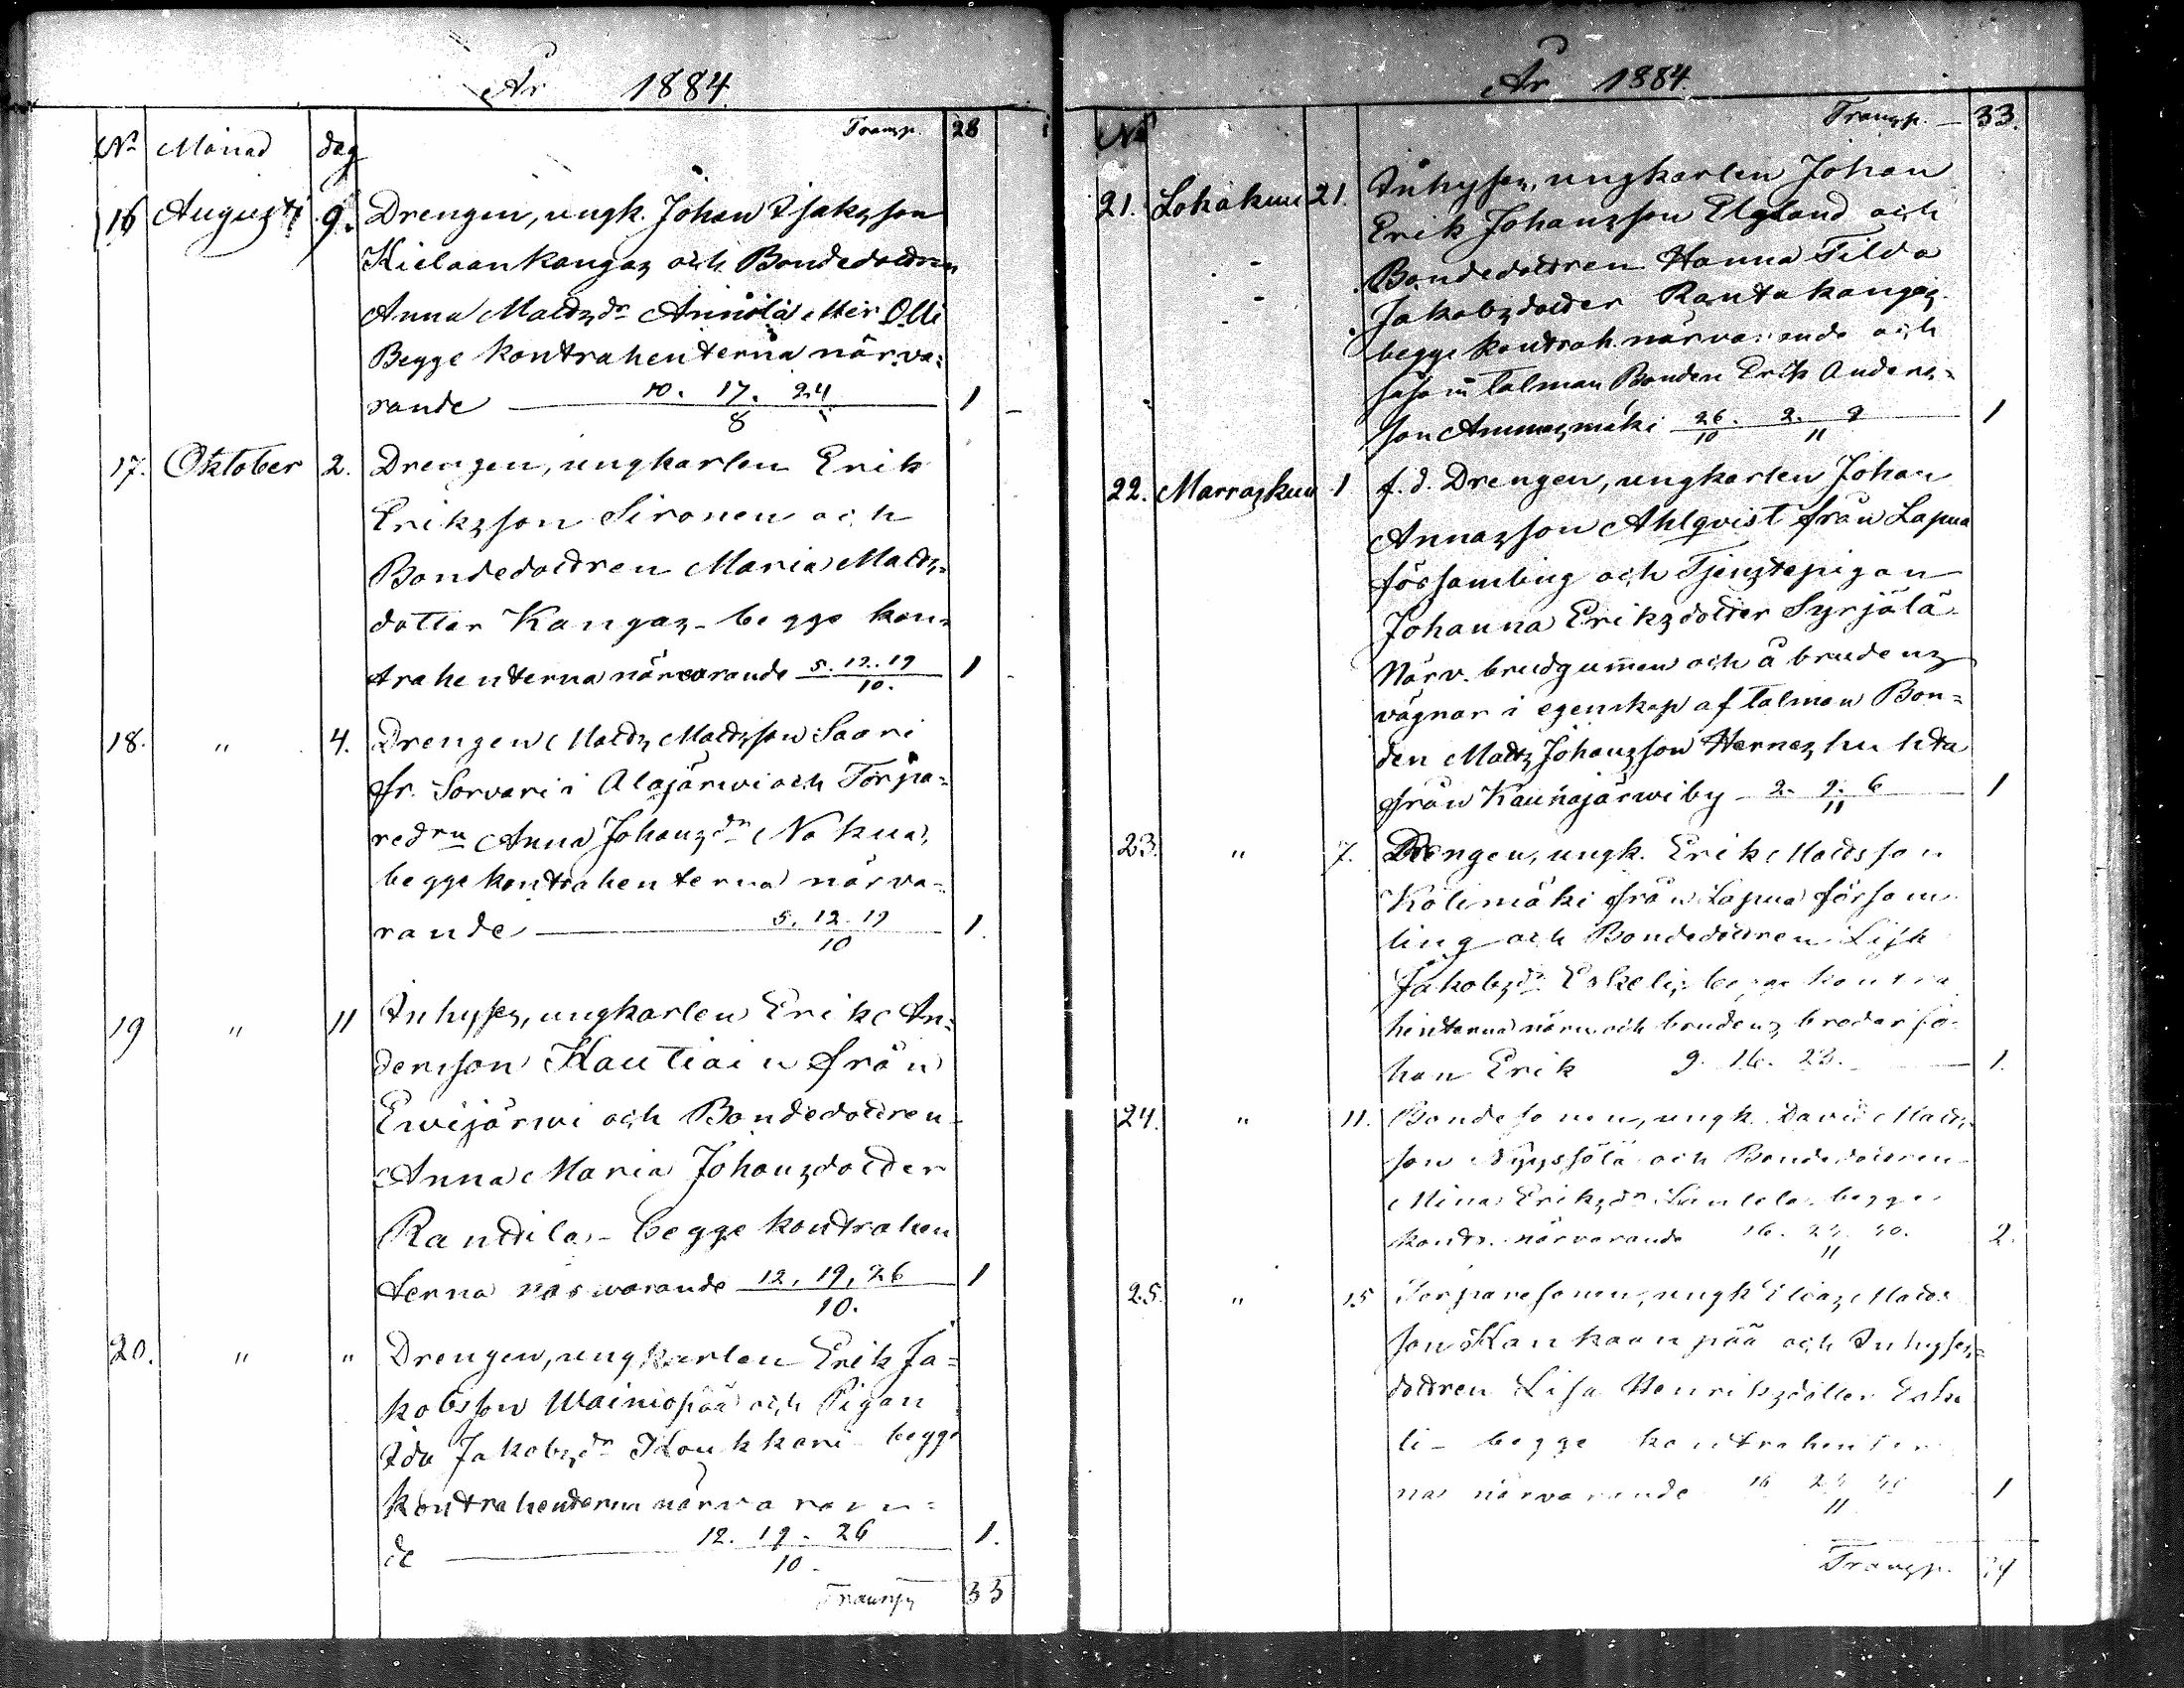 År 1884
Transp. 28
No Månad dag
16 Augusti 9. Drengen, ungk. Johan Isaksson
Kielaankangas och Bondedottren
Anna Mattsdr Annila eller Olli
Begge kontrahenterna närva-
rande 10. 17. 24 / 8 1
17. Oktober 2. Drengen, ungkarlen Erik
Eriksson Sironen och
Bondedottren Maria Matts-
dotter Kangas - begge kon-
trahenterna närvarande 5. 12. 19 / 10. 1
18. " 4. Drengen Matts Mattsson Saari
fr. Sorvari i Alajärwi och Torpa-
redrn Anna Johansdr Nokua,
begge kontrahenterna närva-
rande 5. 12. 19 / 10 1.
19 " 11 Inhyses, ungkarlen Erik An-
dersson Kautiain från
Ewijärwi och Bondedottren
Anna Maria Johansdotter
Rantila - begge kontrahen
terna närwarande 12, 19, 26 / 10. 1
20. " " Drengen, ungkarlen Erik Ja-
kobsson Wainiopää och Pigan
Ida Jakobsdr Koukkari begge
kontrahenterna närvaran-
de 12. 19. 26 / 10. 1.
Transp 33
År 1884.
No Transp. 33.
21. Lokakuu 21. Inhyses, ungkarlen Johan
Erik Johansson Elgland och
Bondedottren Hanna Tilda
Jakobsdotter Rantakangas
begge kontrah. närvarande och
såsom talman Bonden Erik Anders-
son Ammesmäki 26. 2. 9 / 10 11 1
22. Marraskuu 1 f. d. Drengen, ungkarlen Johan
Annasson Ahlqvist från Lapua
församling och Tjenstepigan
Johanna Eriksdotter Syrjälä
Närv. brudgummen och å brudens
vägnar i egenskap af talman Bon-
den Matts Johansson Herneshuhta
från Kaunajärwi by 2. 9. 6 / 11 1
23. " 7. Drengen, ungk. Erik Mattsson
Kölimäki från Lapua försam
ling och Bondedottren Lisa
Jakobsdr Eskeli, begge kontra
henterna närv. och brudens broder Jo-
han Erik 9. 16. 23. 1.
24. " 11. Bondesonen, ungk. David Matts-
son Nyyssölä och Bondedottren
Mina Eriksdr begge
kontr. närvarande 16. 23. 30. / 11 2.
25. " 15 Torparesonen, ungk Elias Matts
son Kankaanpää och Inhyses-
dottren Lisa Henriksdotter Eske
li - begge kontrahenter
na närvarande 16 23 30 / 11 1
Transp. 39